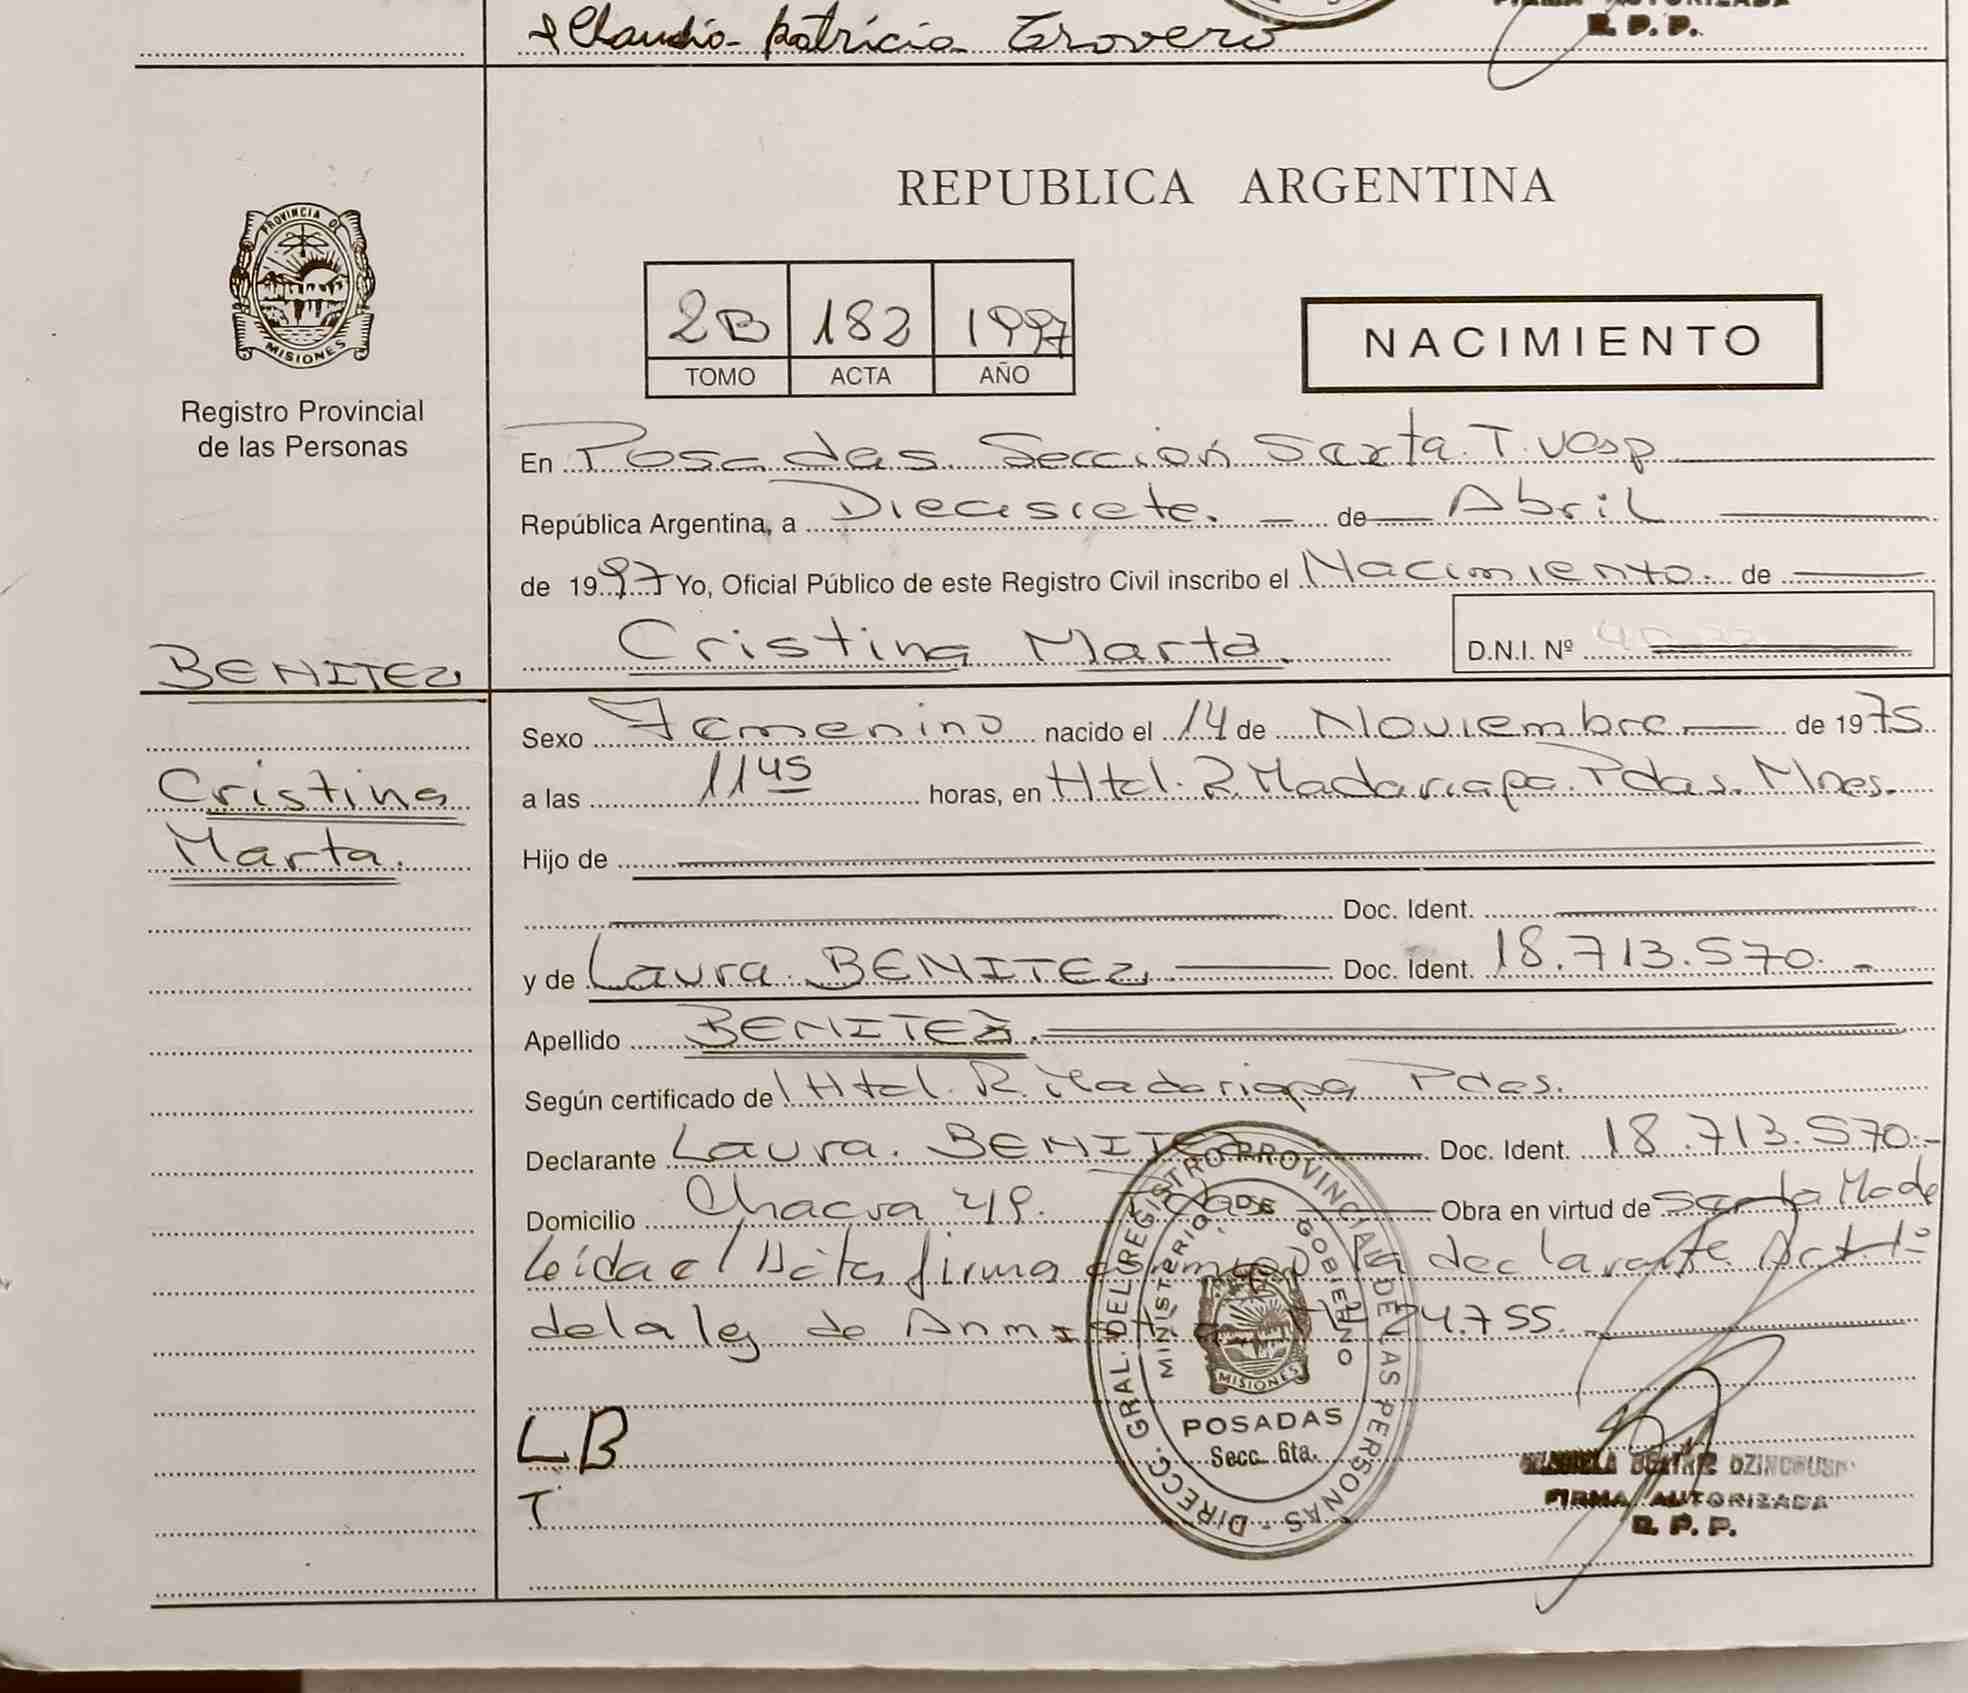 Claudia Patricia Trovero
FIRMA AUTORIZADA
R. P. P.
PROVINCIA DE
MISIONES
Registro Provincial
de las Personas
REPUBLICA ARGENTINA
2B 182 1997
TOMO ACTA AÑO
NACIMIENTO
En Posadas Sección Sexta. T. Vesp
República Argentina, a Diecisiete. de Abril
de 1997 Yo, Oficial Público de este Registro Civil inscribo el Nacimiento. de
Cristina Marta. D.N.I. Nº
BENITEZ
Cristina
Marta.
Sexo Femenino nacido el 14 de Noviembre de 1975
a las 11 45 horas, en Htal. R. Madariaga. Pdas. Mnes.
Hijo de
Doc. Ident.
y de Laura. BENITEZ Doc. Ident. 18.713.570.
Apellido BENITEZ.
Según certificado de Htal. R. Madariaga Pdas.
Declarante Laura. BENITEZ Doc. Ident. 18.713.570.-
Domicilio Chacra 49. Pdas Obra en virtud de
Leída el Acta firma la declarante. Art. 1º
de la ley de Amnistía Nº 24.755.
LB
T
DIRECC. GRAL. DEL REGISTRO PROVINCIAL DE LAS PERSONAS -
MINISTERIO DE GOBIERNO
MISIONES
POSADAS
Secc. 6ta.
BEATRIZ
FIRMA AUTORIZADA
R. P. P.